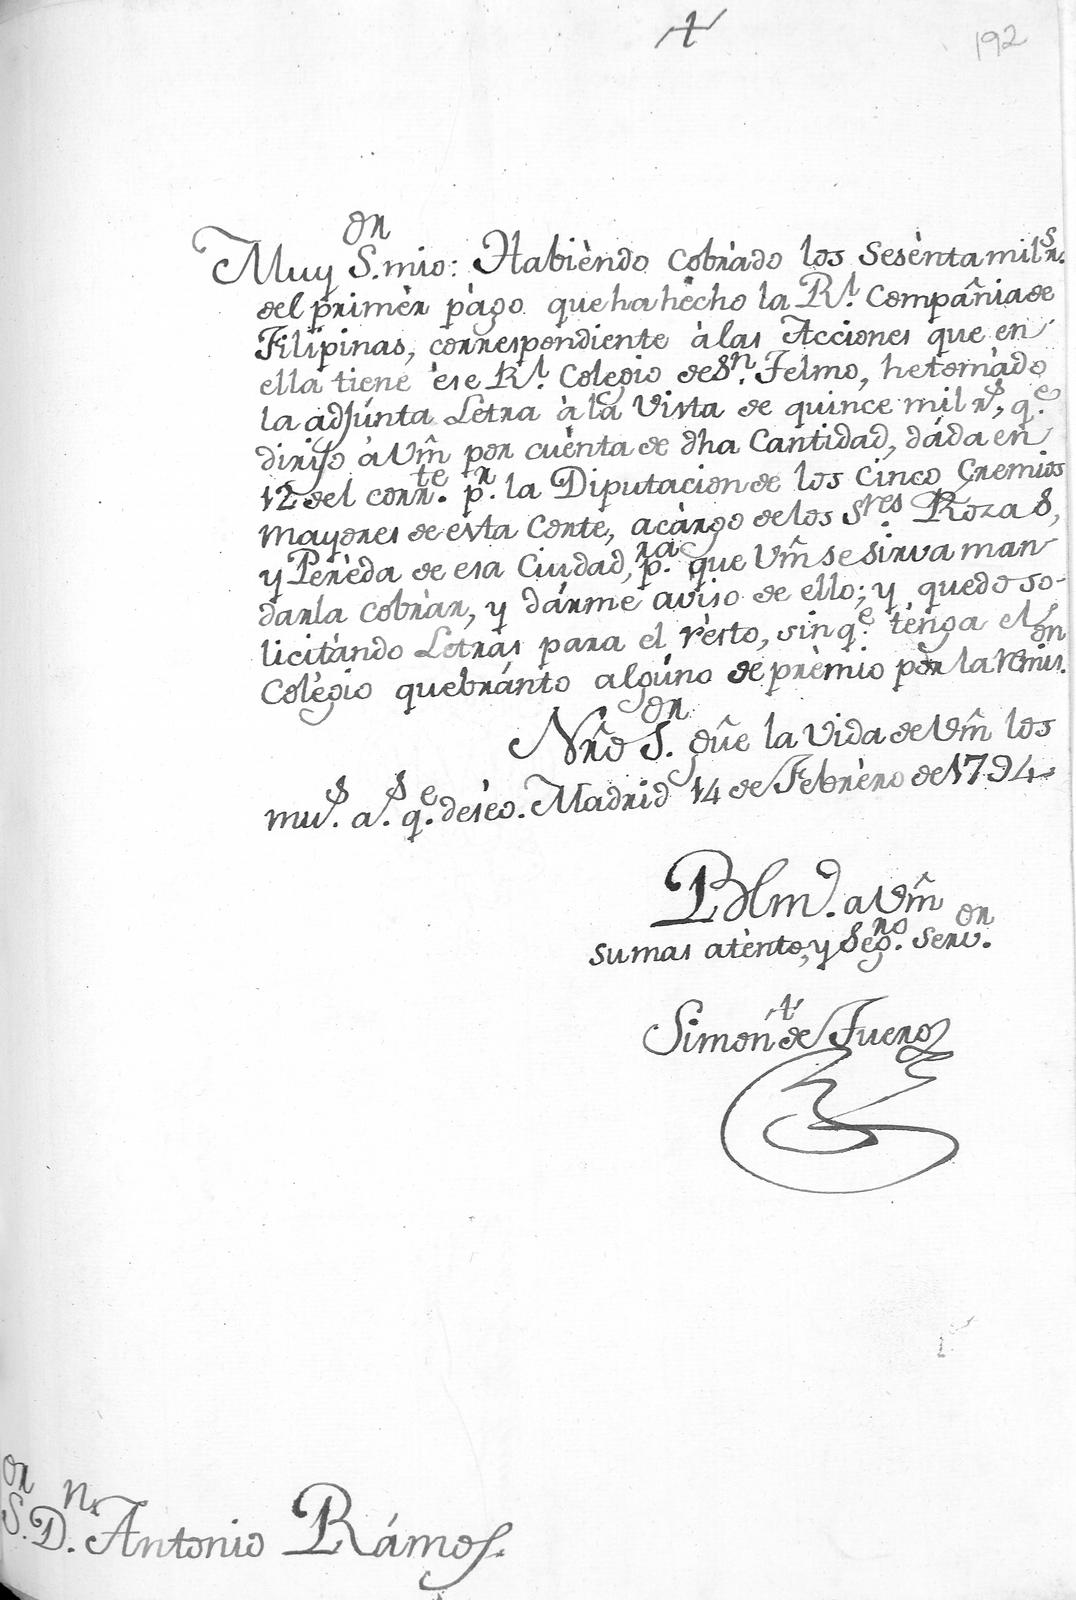 192
Muy S.or mio: Habièndo cobràdo los Sesènta mil r.s
del primèr pàgo que ha hècho la R.l Compañia de
Filipinas, correspondiente à las Acciones que en
ella tiene èse R.l Colegio de S.n Telmo, he tomàdo
la adjùnta Letra à la Vista de quince mil r.s, q.e
dirijo à Vm̃ por cuènta de dha Cantidad, dáda en
12 del corr.te p.r la Diputacion de los Cinco Gremios
Mayores de esta Corte, a càrgo de los S.res Rozas,
y Perèda de esa Ciudad, p.ra que Vm̃ se sirva man
darla cobràr, y dárme aviso de ello; y quedo so-
licitàndo Letras para el rèsto, sin q.e tènga el
Colègio quebránto algúno de prèmio pòr la remis.on
Nr̃o S.or gũe la Vida de Vm̃ los
mu.s a.s q.e desèo. Madrid 14 de Febrèro de 1794
Blm.d a Vm̃
su mas atènto, y Seg.ro Serv.or
Simon de Fueros
S.or D.n Antonio Rámos.